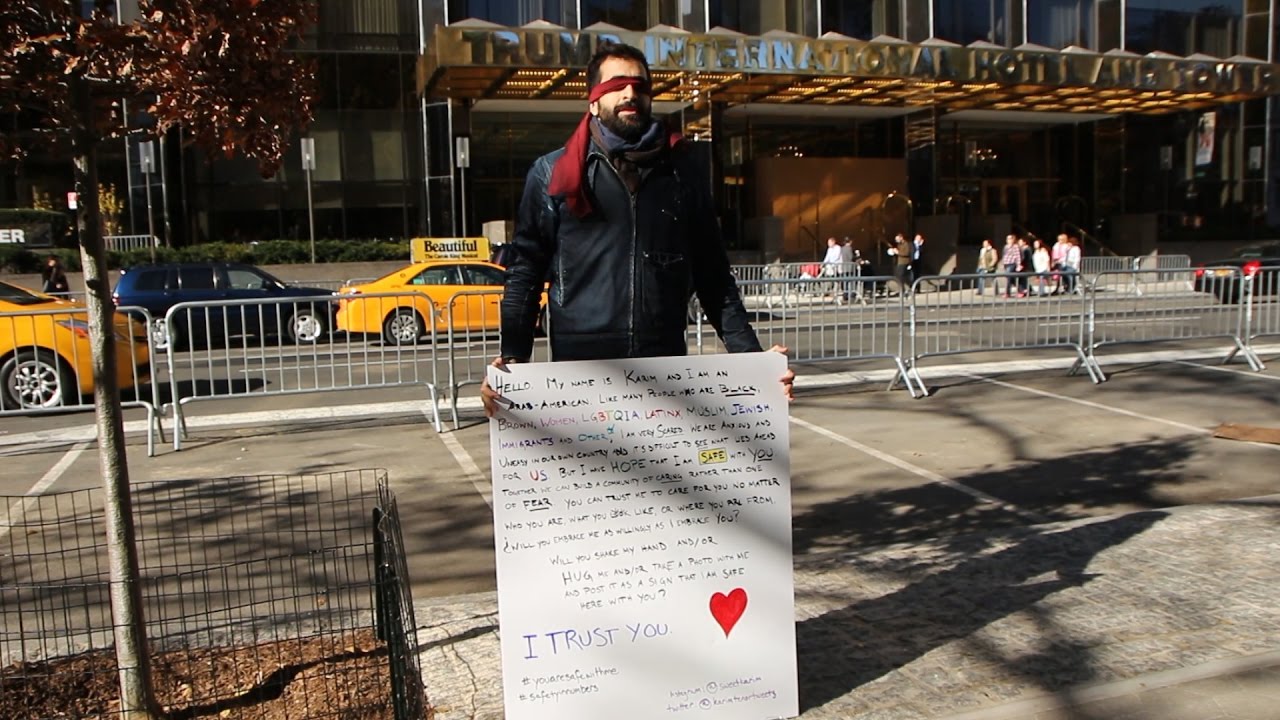 TRUMP INTERNATIONAL HOTEL AND TOWE
Beautiful
The Carole King Musical
ER
HELLO. MY NAME IS KARIM AND I AM AN
ARAB-AMERICAN. LIKE MANY PEOPLE WHO ARE BLACK,
BROWN, WOMEN, LGBTQIA, LATINX, MUSLIM, JEWISH,
IMMIGRANTS AND OTHER, I AM VERY SCARED. WE ARE ANXIOUS AND
UNEASY IN OUR OWN COUNTRY AND IT'S DIFFICULT TO SEE WHAT LIES AHEAD
FOR US. BUT I HAVE HOPE THAT I AM SAFE WITH YOU
TOGETHER WE CAN BUILD A COMMUNITY OF CARING RATHER THAN ONE
OF FEAR. YOU CAN TRUST ME TO CARE FOR YOU NO MATTER
WHO YOU ARE, WHAT YOU LOOK LIKE, OR WHERE YOU ARE FROM.
¿WILL YOU EMBRACE ME AS WILLINGLY AS I EMBRACE YOU?
WILL YOU SHARE MY HAND AND/OR
HUG ME AND/OR TAKE A PHOTO WITH ME
AND POST IT AS A SIGN THAT I AM SAFE
HERE WITH YOU?
I TRUST YOU.
#youaresafewithme
#safetyinnumbers
@sweetkarim
twitter @